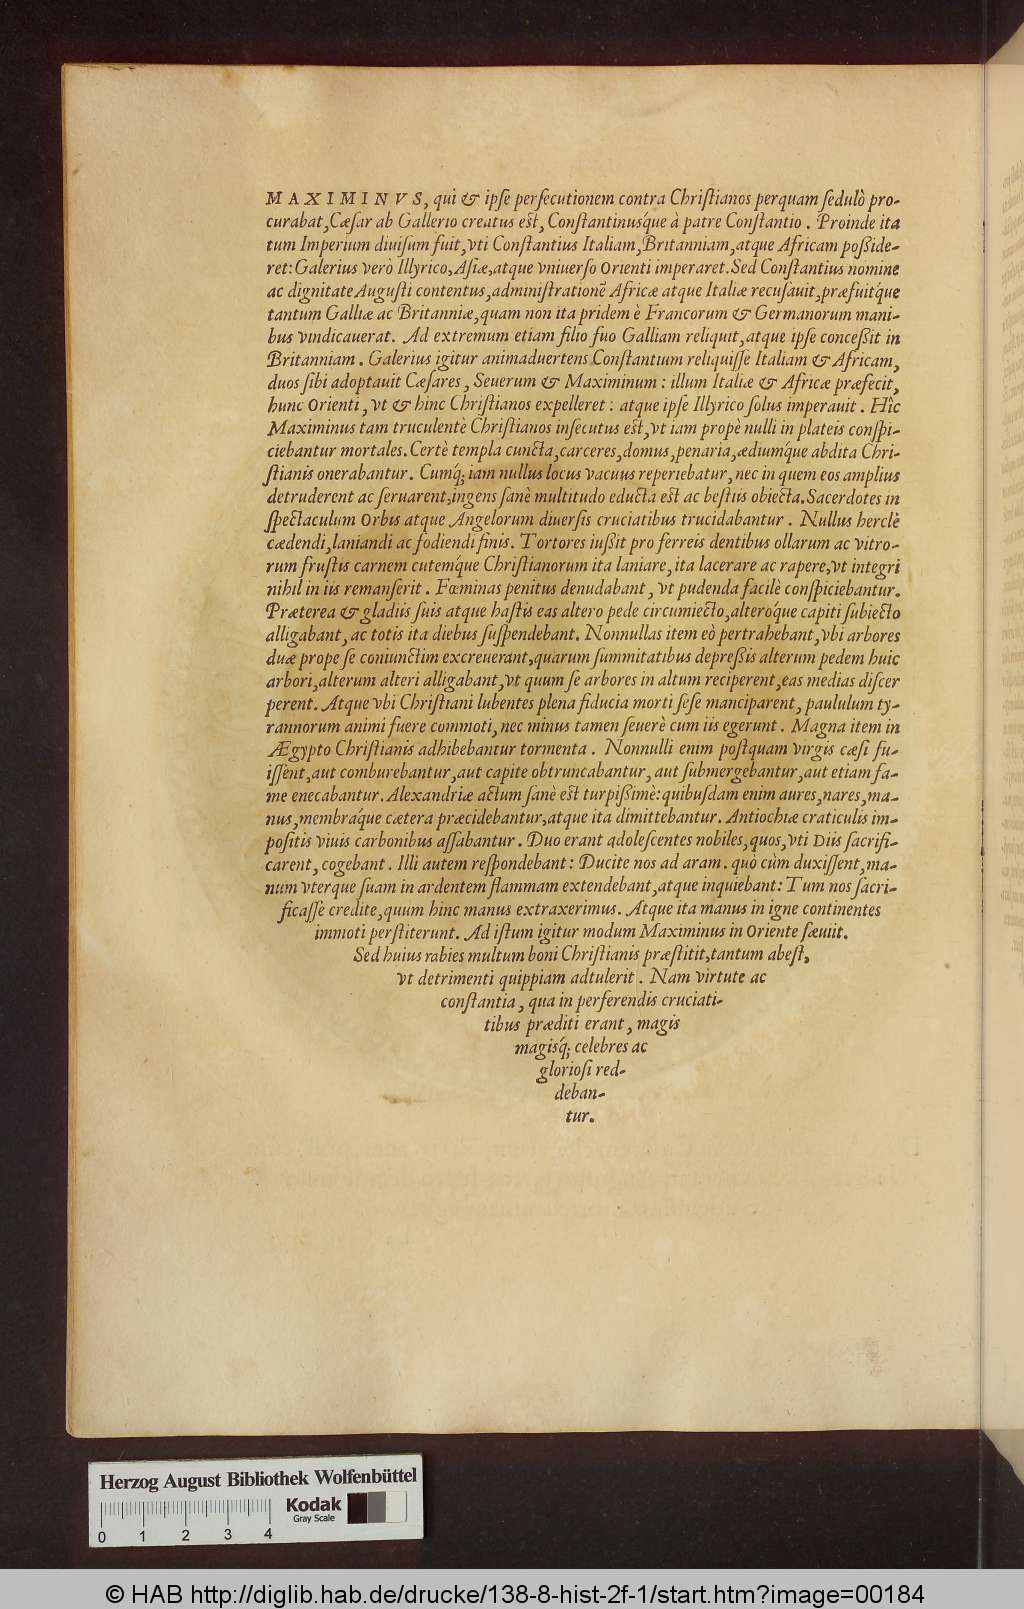 MAXIMINVS, qui & ipſe perſecutionem contra Chriſtianos perquam ſedulò pro-
curabat, Cæſar ab Gallerio creatus eſt, Conſtantinusq́ue à patre Conſtantio. Proinde ita
tum Imperium diuiſum fuit, vti Conſtantius Italiam, Britanniam, atque Africam poßide-
ret: Galerius verò Illyrico, Aſiæ, atque vniuerſo Orienti imperaret. Sed Conſtantius nomine
ac dignitate Auguſti contentus, adminiſtrationē Africæ atque Italiæ recuſauit, præfuitq́ue
tantum Galliæ ac Britanniæ, quam non ita pridem è Francorum & Germanorum mani-
bus vindicauerat. Ad extremum etiam filio ſuo Galliam reliquit, atque ipſe conceßit in
Britanniam. Galerius igitur animaduertens Conſtantium reliquiſſe Italiam & Africam,
duos ſibi adoptauit Cæſares, Seuerum & Maximinum: illum Italiæ & Africæ præfecit,
hunc Orienti, vt & hinc Chriſtianos expelleret: atque ipſe Illyrico ſolus imperauit. Hîc
Maximinus tam truculentè Chriſtianos inſecutus eſt, vt iam propè nulli in plateis conſpi-
ciebantur mortales. Certè templa cuncta, carceres, domus, penaria, ædiumq́ue abdita Chri-
ſtianis onerabantur. Cumq́; iam nullus locus vacuus reperiebatur, nec in quem eos amplius
detruderent ac ſeruarent, ingens ſanè multitudo educta eſt ac beſtiis obiecta. Sacerdotes in
ſpectaculum Orbis atque Angelorum diuerſis cruciatibus trucidabantur. Nullus herclè
cædendi, laniandi ac fodiendi finis. Tortores iußit pro ferreis dentibus ollarum ac vitro-
rum fruſtis carnem cutemq́ue Chriſtianorum ita laniare, ita lacerare ac rapere, vt integri
nihil in iis remanſerit. Fœminas penitus denudabant, vt pudenda facilè conſpiciebantur.
Præterea & gladiis ſuis atque haſtis eas altero pede circumiecto, alteroq́ue capiti ſubiecto
alligabant, ac totis ita diebus ſuſpendebant. Nonnullas item eò pertrahebant, vbi arbores
duæ prope ſe coniunctim excreuerant, quarum ſummitatibus depreßis alterum pedem huic
arbori, alterum alteri alligabant, vt quum ſe arbores in altum reciperent, eas medias diſcer
perent. Atque vbi Chriſtiani lubentes plena fiducia morti ſeſe manciparent, paululum ty-
rannorum animi fuere commoti, nec minus tamen ſeuerè cum iis egerunt. Magna item in
Ægypto Chriſtianis adhibebantur tormenta. Nonnulli enim poſtquam virgis cæſi fu-
iſſent, aut comburebantur, aut capite obtruncabantur, aut ſubmergebantur, aut etiam fa-
me enecabantur. Alexandriæ actum ſanè eſt turpißimè: quibuſdam enim aures, nares, ma-
nus, membraq́ue cætera præcidebantur, atque ita dimittebantur. Antiochiæ craticulis im-
poſitis viuis carbonibus aſſabantur. Duo erant adoleſcentes nobiles, quos, vti Diis ſacrifi-
carent, cogebant. Illi autem reſpondebant: Ducite nos ad aram. quò cùm duxiſſent, ma-
num vterque ſuam in ardentem flammam extendebant, atque inquiebant: Tum nos ſacri-
ficaſſe credite, quum hinc manus extraxerimus. Atque ita manus in igne continentes
immoti perſtiterunt. Ad iſtum igitur modum Maximinus in Oriente ſæuiit.
Sed huius rabies multum boni Chriſtianis præſtitit, tantum abeſt,
vt detrimenti quippiam adtulerit. Nam virtute ac
conſtantia, qua in perferendis cruciati-
tibus præditi erant, magis
magisq́; celebres ac
glorioſi red-
deban-
tur.
Herzog August Bibliothek Wolfenbüttel
Kodak
Gray Scale
0 1 2 3 4
© HAB http://diglib.hab.de/drucke/138-8-hist-2f-1/start.htm?image=00184